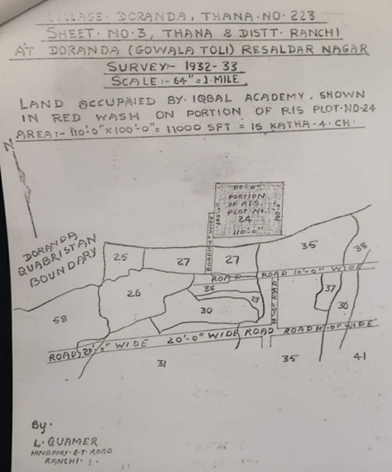 VILLAGE- DORANDA, THANA-NO-223
SHEET-NO-3, THANA & DISTT. RANCHI
AT DORANDA (GOWALA TOLI) RESALDAR NAGAR
SURVEY- 1932-33
SCALE:- 64"=1 MILE.
LAND OCCUPAIED BY. IQBAL ACADEMY, SHOWN
IN RED WASH ON PORTION OF RIS PLOT-NO-24
AREA:- 110'-0"X100'-0"= 11000 SFT = 15 KATHA-4-CH.
N
110'-0"
PORTION
OF R.I.S.
PLOT NO.
24
110'-0"
DORANDA
QUABRISTAN
BOUNDARY
25
27
27
35
38
ROAD
ROAD
ROAD 10'-6" WIDE
26
38
30
37
36
58
ROAD
20'-0" WIDE
20'-0" WIDE ROAD
ROAD
WIDE
31
35
41
By.
L. QUAMER
HINDPIRI. E.T. ROAD
RANCHI-1.